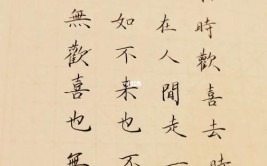 時歡喜去時
在人間走一
如不来也不
無歡喜也無